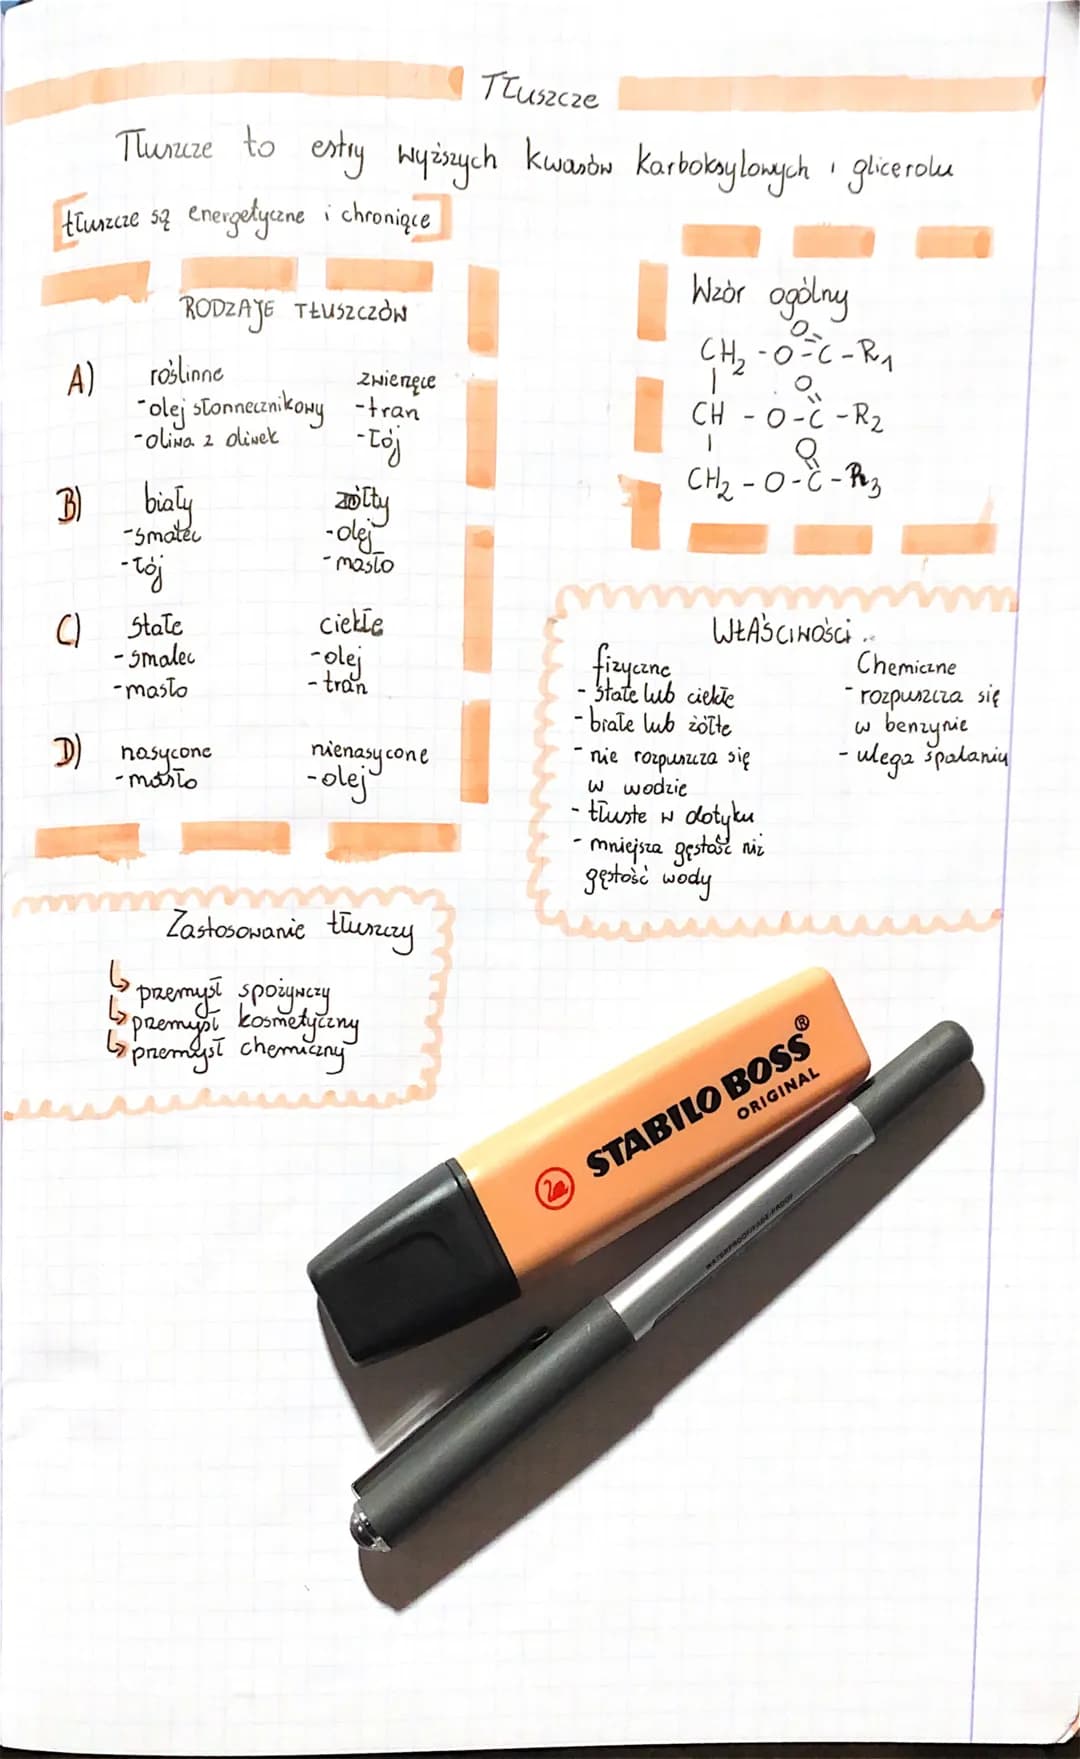 Tłuszcze
Tłuszcze to estry wyższych kwasów karboksylowych i glicerolu
[tłuszcze są energetyczne i chroniące]
RODZAJE TŁUSZCZÓW
A) roślinne zwierzęce
-olej słonnecznikowy -tran
-oliwa z oliwek -łój
B) biały żółty
-smalec -olej
-łój -masło
C) stałe ciekłe
-smalec -olej
-masło -tran
D) nasycone nienasycone
-masło -olej
Wzór ogólny
O
CH2 - O - C - R1
O
CH - O - C - R2
O
CH2 - O - C - R3
WŁAŚCIWOŚCI
fizyczne Chemiczne
- stałe lub ciekłe - rozpuszcza się
- białe lub żółte w benzynie
- nie rozpuszcza się - ulega spalaniu
w wodzie
- tłuste w dotyku
- mniejsza gęstość niż
gęstość wody
Zastosowanie tłuszczy
↳ przemysł spożywczy
↳ przemysł kosmetyczny
↳ przemysł chemiczny
STABILO BOSS®
ORIGINAL
WATERPROOF/FADE-PROOF